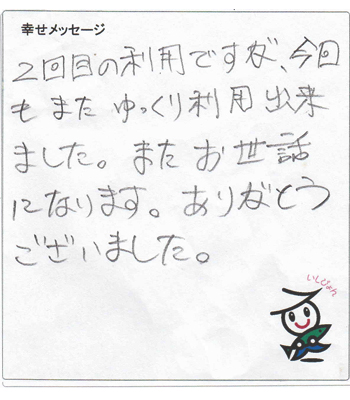 幸せメッセージ
2回目の利用ですが、今回
もまたゆっくり利用出来
ました。またお世話
になります。ありがとう
ございました。
いしぴょん